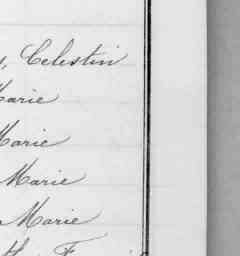 s, Celestin
Marie
Marie
Marie
Marie